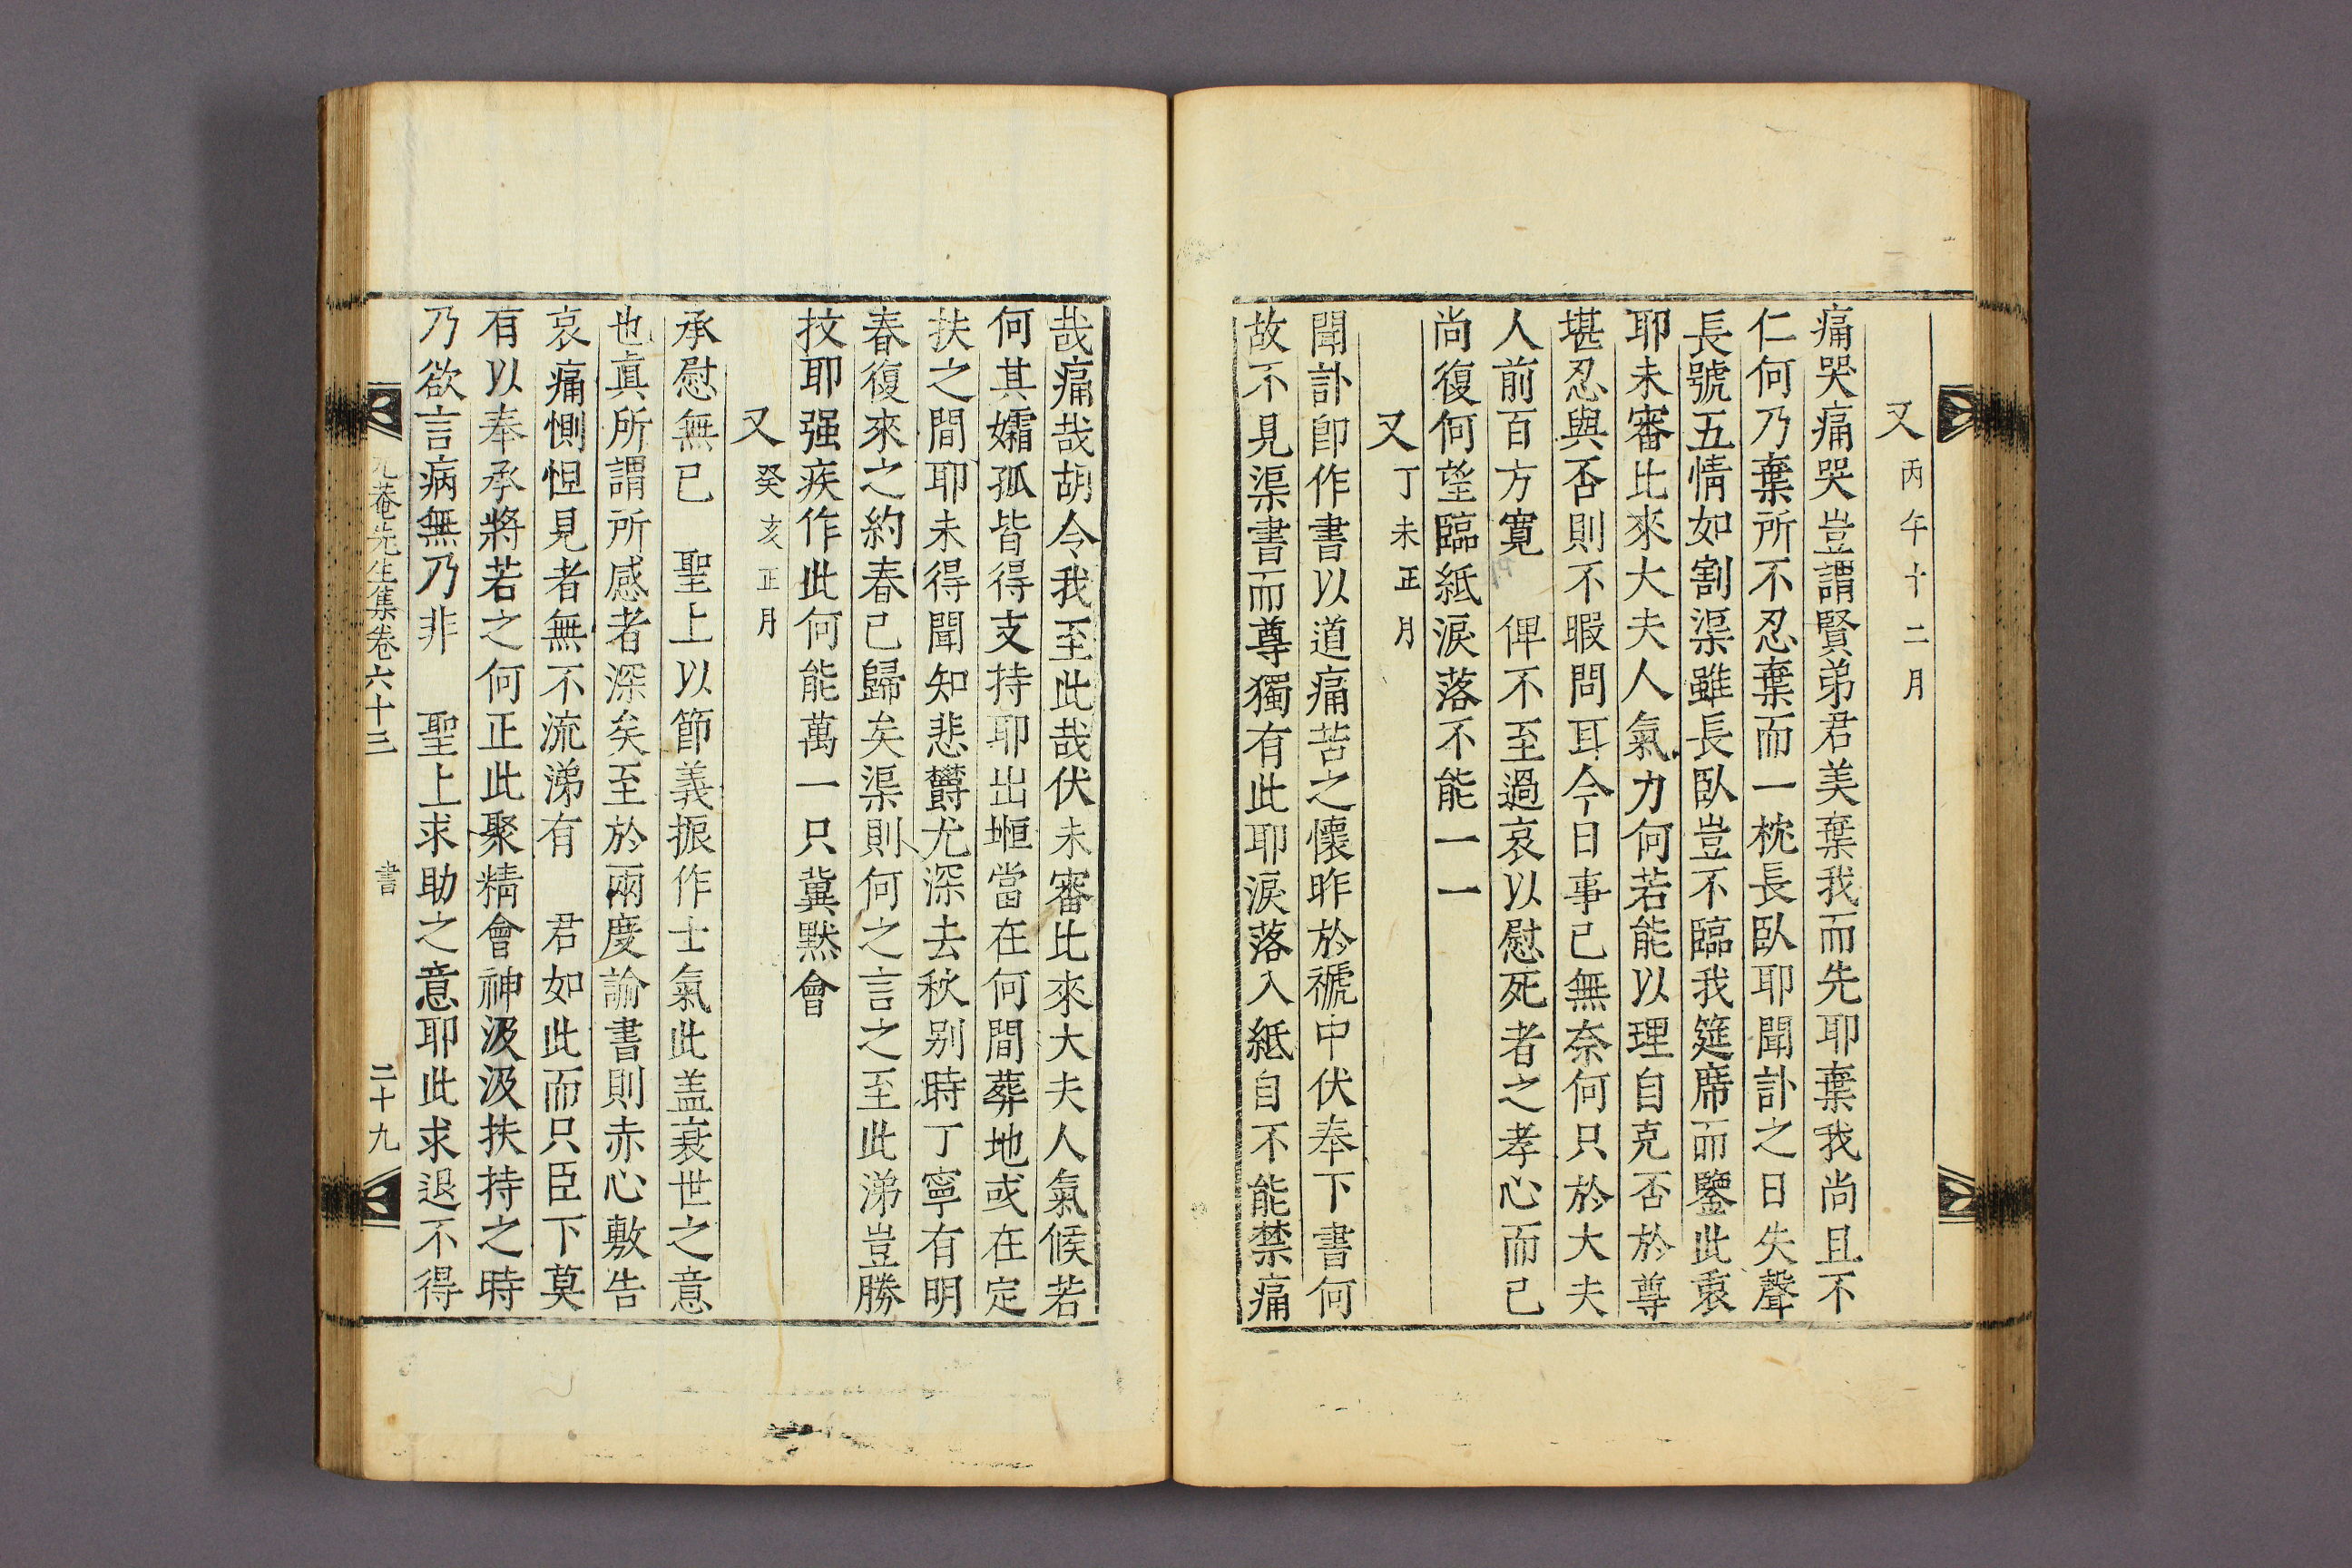 又丙午十二月
痛哭痛哭豈謂賢弟君美棄我而先耶棄我尚且不
仁何乃棄所不忍棄而一枕長臥耶聞訃之日失聲
長號五情如割渠雖長臥豈不臨我筵席而鑒此衷
耶未審比來大夫人氣力何若能以理自克否於尊
堪忍與否則不暇問耳今日事已無奈何只於大夫
人前百方寬 俾不至過哀以慰死者之孝心而已
尚復何望臨紙淚落不能一一
又丁未正月
聞訃卽作書以道痛苦之懷昨於褫中伏奉下書何
故不見渠書而尊獨有此耶淚落入紙自不能禁痛
哉痛哉胡令我至此哉伏未審比來大夫人氣候若
何其孀孤皆得支持耶出堩當在何間葬地或在定
扶之間耶未得聞知悲欝尤深去秋别時丁寧有明
春復來之約春已歸矣渠則何之言之至此涕豈勝
抆耶强疾作此何能萬一只冀默會
又癸亥正月
承慰無已 聖上以節義振作士氣此盖衰世之意
也眞所謂所感者深矣至於兩度諭書則赤心敷告
哀痛惻怛見者無不流涕有 君如此而只臣下莫
有以奉承將若之何正此聚精會神汲汲扶持之時
乃欲言病無乃非 聖上求助之意耶此求退不得
菴先生集卷六十三 書 二十九